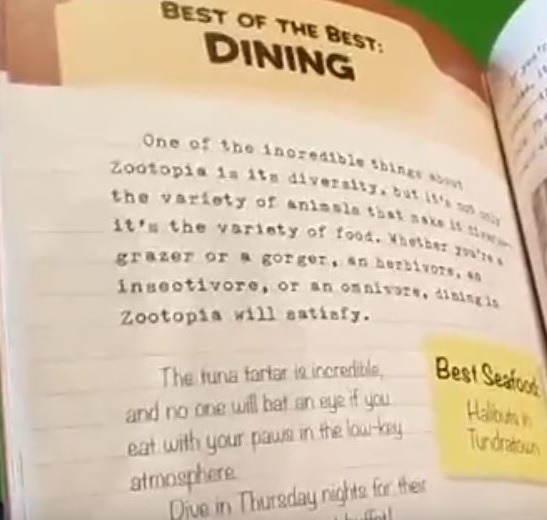 BEST OF THE BEST:
DINING
One of the incredible things about
Zootopia is its diversity, but it's not only
the variety of animals that make it
it's the variety of food. Whether you're a
grazer or a gorger, an herbivore, an
insectivore, or an omnivore, dining in
Zootopia will satisfy.
The tuna tartar is incredible,
and no one will bat an eye if you
eat with your paws in the low-key
atmosphere.
Dive in Thursday nights for their
Best Seafood:
Halibuts in
Tundratown